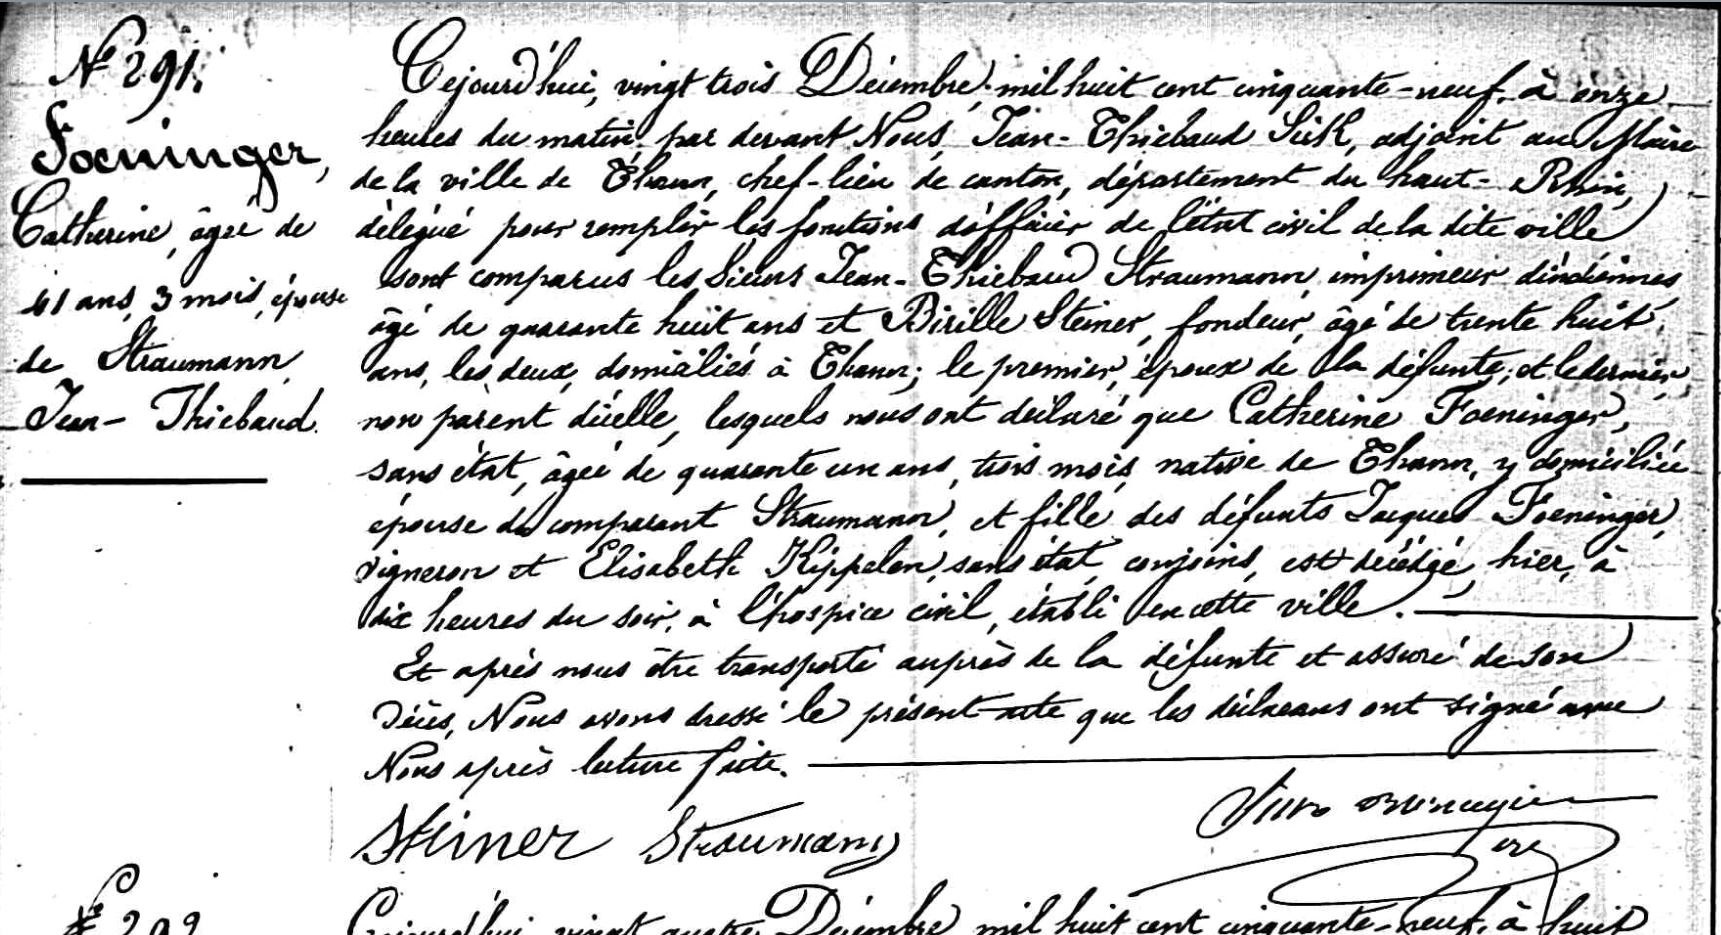 N° 291.
Foeninger,
Catherine, âgée de
41 ans, 3 mois, épouse
de Straumann,
Jean-Thiebaud.
Cejourd'hui, vingt trois Décembre, mil huit cent cinquante-neuf, à onze
heures du matin, par devant Nous, Jean-Thiebaud Sick, adjoint au Maire
de la ville de Thann, chef-lieu de canton, département du haut-Rhin,
délégué pour remplir les fonctions d'officier de l'état civil de la dite ville
sont comparus les Sieurs Jean-Thiebaud Straumann, imprimeur d'indiennes
âgé de quarante huit ans et Steiner, fondeur, âgé de trente huit
ans, les deux, domiciliés à Thann; le premier, époux de la défunte, et le dernier,
non parent d'icelle, lesquels nous ont déclaré que Catherine Foeninger,
sans état, âgée de quarante un ans, trois mois, native de Thann, y domiciliée
épouse du comparant Straumann, et fille des défunts Jacques Foeninger,
vigneron et Elisabeth Kippelen, sans état, conjoints, est décédée, hier, à
dix heures du soir, à l'hospice civil, établi en cette ville.
Et après nous être transporté auprès de la défunte et assuré de son
décès, Nous avons dressé le présent acte que les déclarans ont signé avec
Nous après lecture faite.
Steiner Straumann
N° 292
Cejourd'hui, vingt quatre Décembre mil huit cent cinquante-neuf, à huit